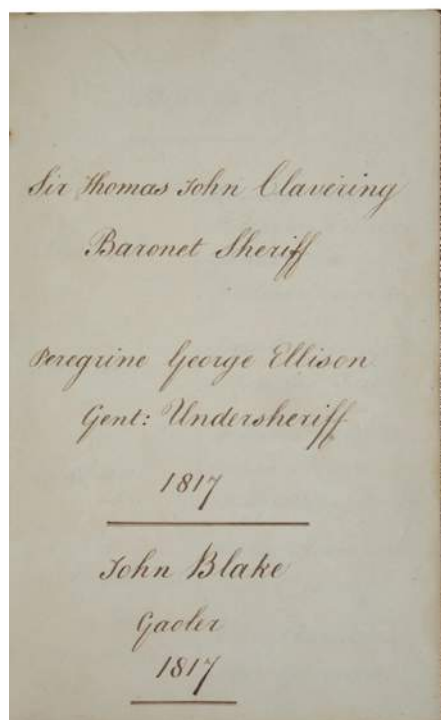 Sir Thomas John Clavering
Baronet Sheriff
Peregrine George Ellison
Gent: Undersheriff
1817
John Blake
Gaoler
1817